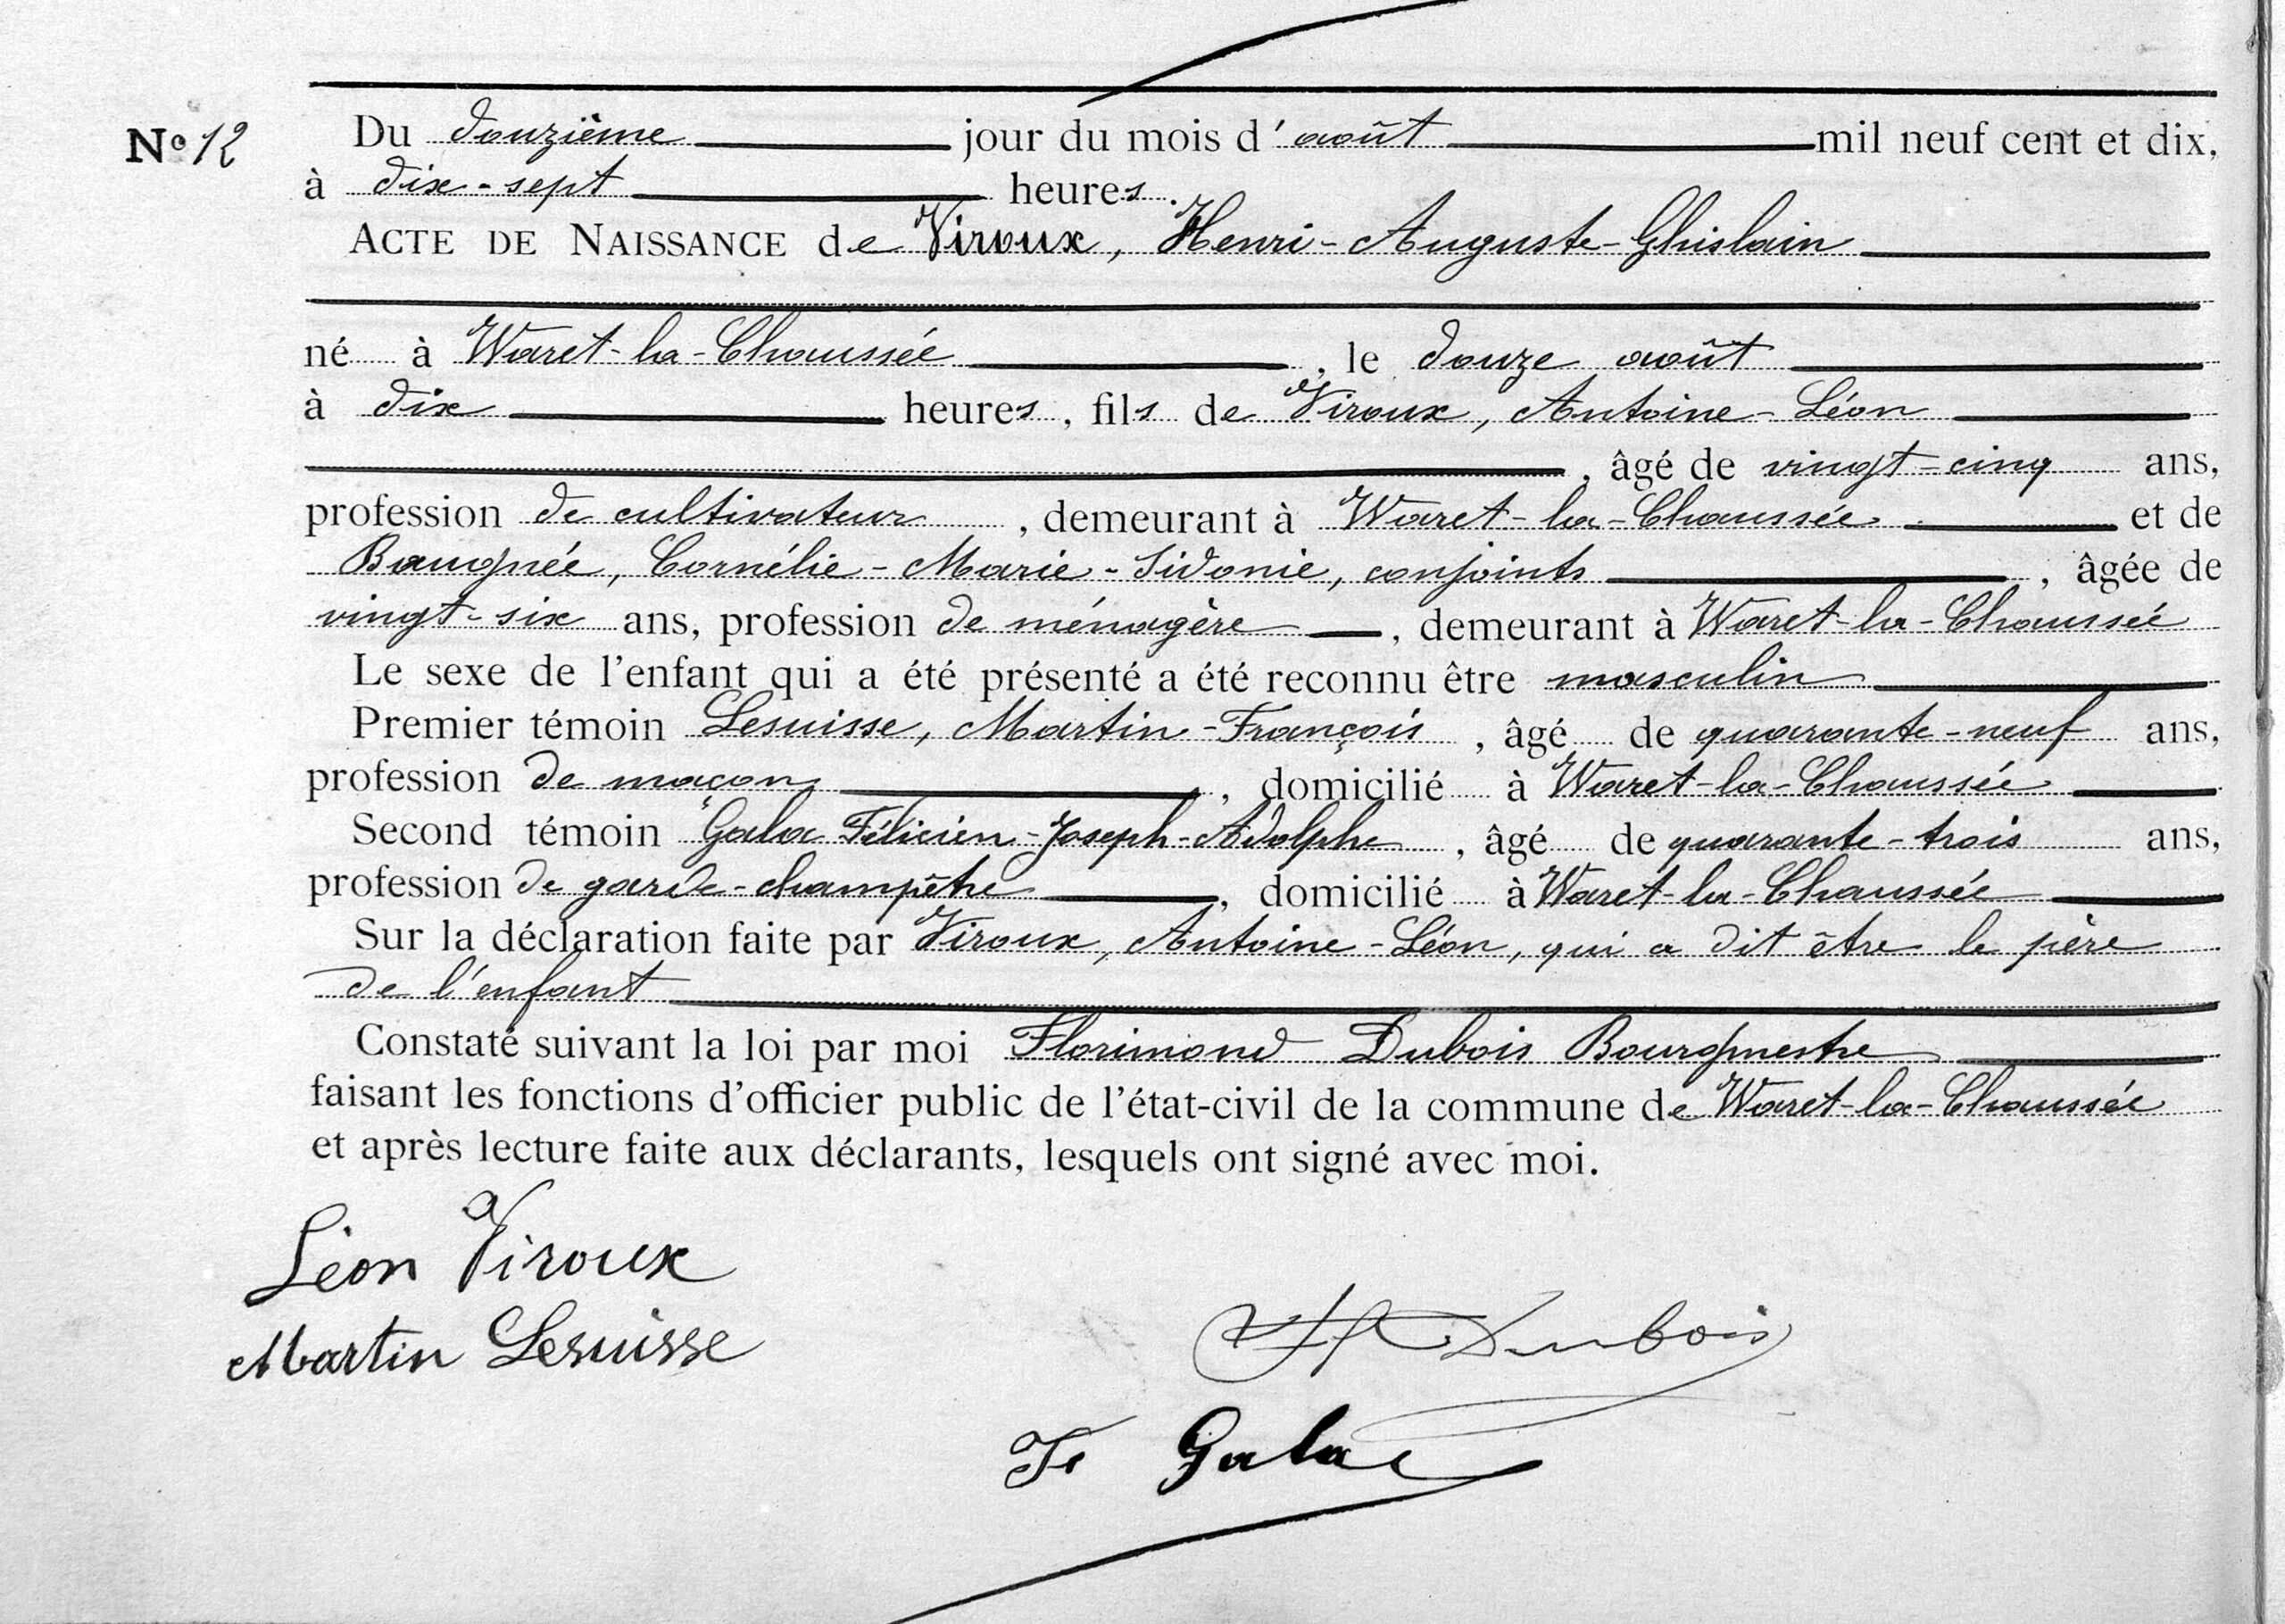 Nº 12
Du douzième jour du mois d'août mil neuf cent et dix,
à dix-sept heures.
ACTE DE NAISSANCE de Viroux, Henri-Auguste-Ghislain
né à Waret-la-Chaussée, le douze août
à dix heures, fils de Viroux, Antoine-Léon
, âgé de vingt-cinq ans,
profession de cultivateur, demeurant à Waret-la-Chaussée et de
Baugnée, Cornélie-Marie-Sidonie, conjoints, âgée de
vingt-six ans, profession de ménagère, demeurant à Waret-la-Chaussée
Le sexe de l'enfant qui a été présenté a été reconnu être masculin
Premier témoin Lesuisse, Martin-François, âgé de quarante-neuf ans,
profession de maçon, domicilié à Waret-la-Chaussée
Second témoin Gala Félicien-Joseph-Adolphe, âgé de quarante-trois ans,
profession de garde-champêtre, domicilié à Waret-la-Chaussée
Sur la déclaration faite par Viroux, Antoine-Léon, qui a dit être le père
de l'enfant
Constaté suivant la loi par moi Florimond Dubois Bourgmestre
faisant les fonctions d'officier public de l'état-civil de la commune de Waret-la-Chaussée
et après lecture faite aux déclarants, lesquels ont signé avec moi.
Léon Viroux
Martin Lesuisse
Fl Dubois
Fe Gala